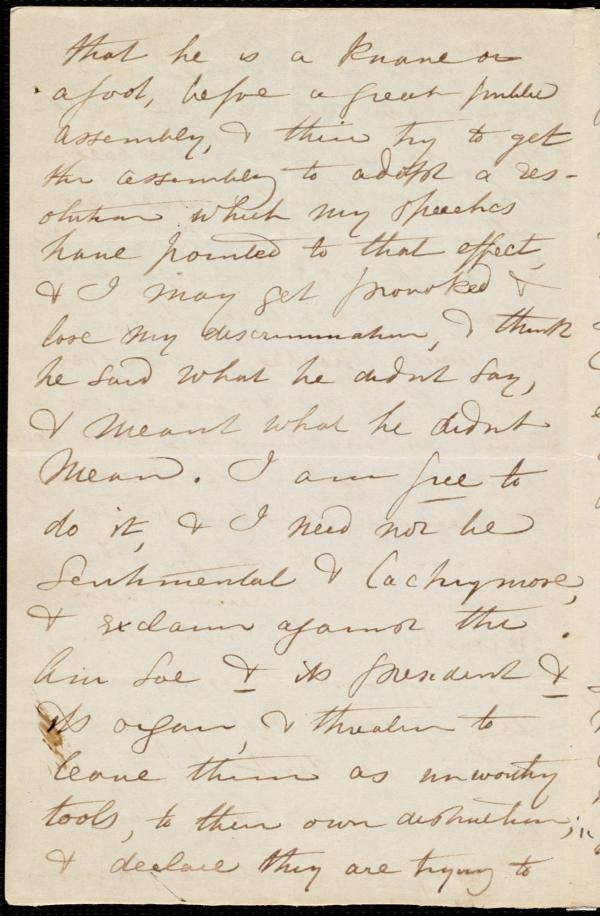 that he is a knave or
a fool, before a great public
assembly, & then try to get
the assembly to adopt a res-
olution which my speeches
have pointed to that effect,
& I may get provoked &
lose my discrimination, & think
he said what he didnt say,
& meant what he didnt
mean. I am free to
do it, & I need not be
sentimental & lachrymose,
& exclaim against the
Am Soc & its president &
its organ, & threaten to
leave them as unworthy
tools, to their own destruction;
& declare they are trying to